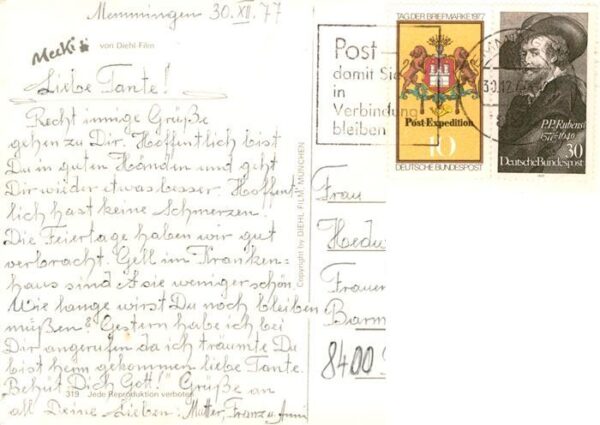 Memmingen 30.XII.77
Mecki
von Diehl-Film
Liebe Tante!
Recht innige Grüße
gehen zu Dir. Hoffentlich bist
Du in guten Händen und geht
Dir wieder etwas besser. Hoffent
lich hast keine Schmerzen.
Die Feiertage haben wir gut
verbracht. Gell im Kranken-
haus sind sie weniger schön.
Wie lange wirst Du noch bleiben
müßen? Gestern habe ich bei
Dir angerufen da ich träumte Du
bist heim gekommen liebe Tante.
Behüt Dich Gott! Grüße an
all Deine Lieben: Mutter, Franz u. Anni
319 Jede Reproduktion verboten
Copyright by DIEHL FILM, MÜNCHEN
Post
damit Sie
in
Verbindung
bleiben
TAG DER BRIEFMARKE 1977
Post-Expedition
10
DEUTSCHE BUNDESPOST
30.12.
P.P. Rubens
1577-1640
30
Deutsche Bundespost
Frau
Hedw
Frauen
Barm
8400